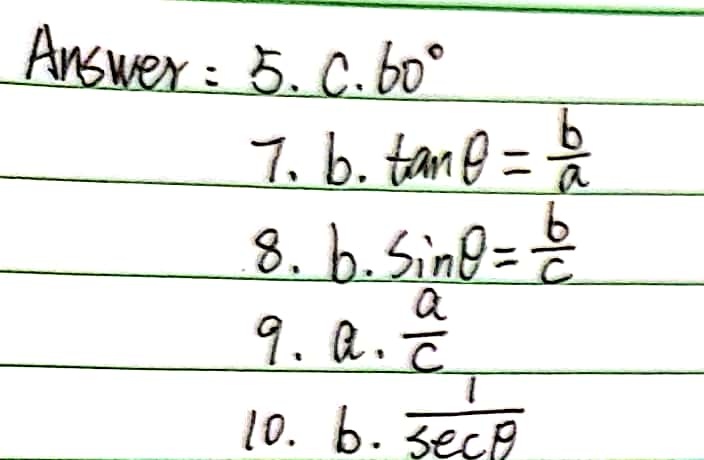 Answer: 5. c. 60°
7. b. tanθ = b/a
8. b. sinθ = b/c
9. a. a/c
10. b. 1/secθ